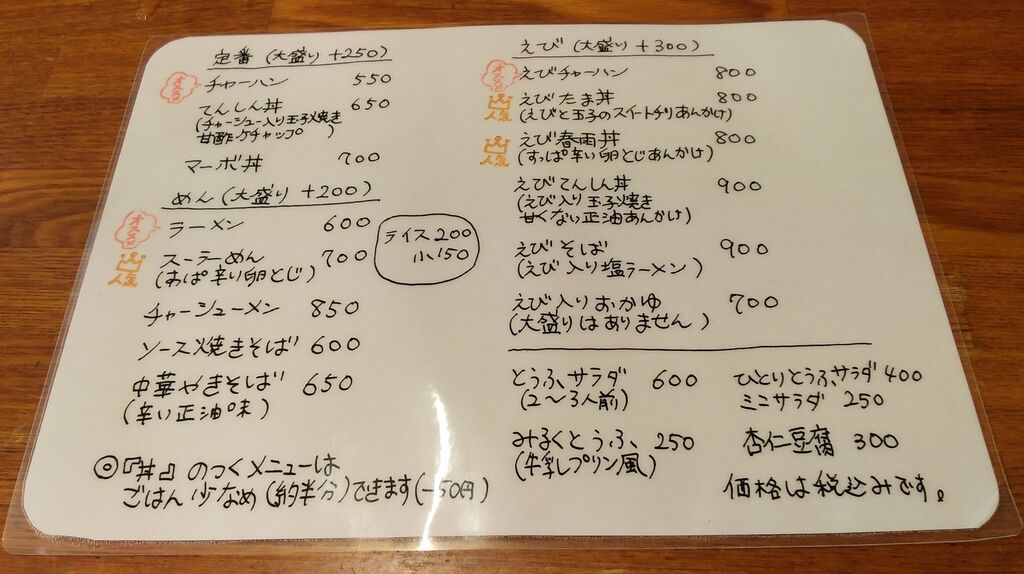 定番 (大盛り +250)
オススメ チャーハン 550
てんしん丼 650
(チャーシュー入り玉子焼き
甘酢ケチャップ )
マーボ丼 700
めん (大盛り +200)
オススメ ラーメン 600
人気 スーラーめん 700
(すっぱ辛い卵とじ)
チャーシューメン 850
ソース焼きそば 600
中華やきそば 650
(辛い正油味)
ライス 200
小150
◎『丼』のつくメニューは
ごはん少なめ(約半分)できます(-50円)
えび (大盛り +300)
オススメ えびチャーハン 800
人気 えびたま丼 800
(えびと玉子のスイートチリあんかけ)
人気 えび春雨丼 800
(すっぱ辛い卵とじあんかけ)
えびてんしん丼 900
(えび入り玉子焼き
甘くない正油あんかけ)
えびそば 900
(えび入り塩ラーメン)
えび入りおかゆ 700
(大盛りはありません)
とうふサラダ 600
(2〜3人前)
みるくとうふ 250
(牛乳プリン風)
ひとりとうふサラダ 400
ミニサラダ 250
杏仁豆腐 300
価格は税込みです。